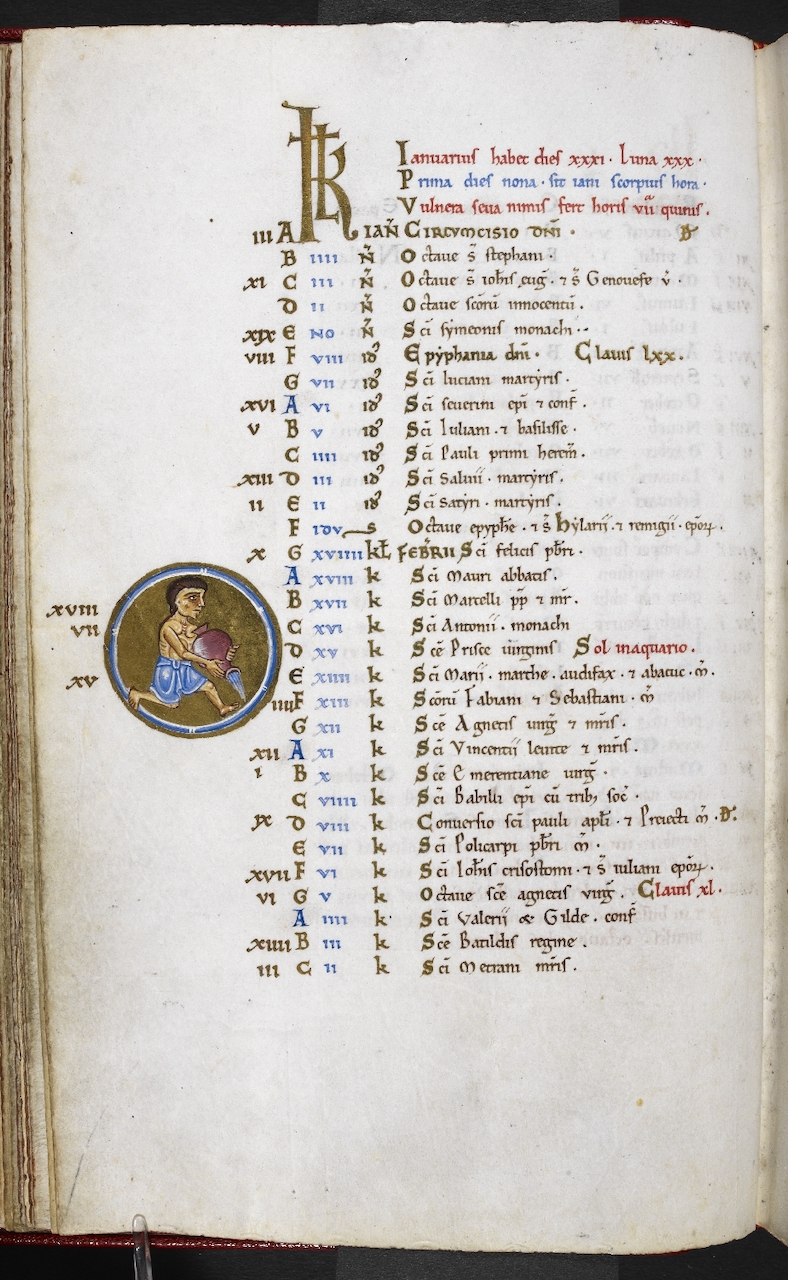 KL Ianuarius habet dies xxxi · Luna xxx ·
Prima dies nona · sit iam scorpius hora ·
Vulnera seua nimis fert horis vii quinis .
iii A IAN̄ CIRCVMCISIO dn̄i ·
B iiii N̄ Octaue s̄ stephani ·
xi C iii N̄ Octaue s̄ ioh̄is euḡ · ⁊ s̄ Genouefe v̄ ·
D ii N̄ Octaue scōrū innocentū .
xix E NO N̄ Sc̄i symeonis monachi ·
viii F viii id᷒ Epyphania dn̄i · Clauis lxx .
G vii id᷒ Sc̄i luciani martyris .
xvi A vi id᷒ Sc̄i seuerini ep̄i ⁊ conf̄ .
v B v id᷒ Sc̄i Iuliani · ⁊ basilisse ·
C iiii id᷒ Sc̄i Pauli primi herem̄ .
xiii D iii id᷒ Sc̄i Saluii · martyris .
ii E ii id᷒ Sc̄i Satyri · martyris .
F idvs Octaue epyph̄e · ⁊ s̄ hylarij · ⁊ remigii · ep̄oꝝ .
x G xviiii kl̄ FEBR̄II Sc̄i felicis pb̄ri ·
A xviii k Sc̄i Mauri abbatis .
xviii B xvii k Sc̄i Marcelli pp̄ ⁊ mr̄ .
vii C xvi k Sc̄i Antonii · monachi
D xv k Sc̄e Prisce uirginis Sol in aquario .
xv E xiiii k Sc̄i Marij · marthe · audifax · ⁊ abacuc · m̄ .
iiii F xiii k Scōrū Fabiani ⁊ Sebastiani · m̄
G xii k Sc̄e Agnetis uirḡ ⁊ mr̄is .
xii A xi k Sc̄i Vincentij leuite ⁊ mr̄is .
i B x k Sc̄e Emerentiane uirḡ ·
C viiii k Sc̄i Babilli ep̄i cū trib; soc̄ ·
ix D viii k Conuersio sc̄i pauli apl̄i · ⁊ Preiecti m̄ ·
E vii k Sc̄i Policarpi pb̄ri m̄ ·
xvii F vi k Sc̄i Ioh̄is crisostomi · ⁊ s̄ iuliani ep̄oꝝ .
vi G v k Octaue sc̄e agnetis uirḡ . Clauis xl .
A iiii k Sc̄i Valerij & Gilde . conf̄
xiiii B iii k Sc̄e Batildis regine .
iii C ii k Sc̄i Metrani mr̄is .